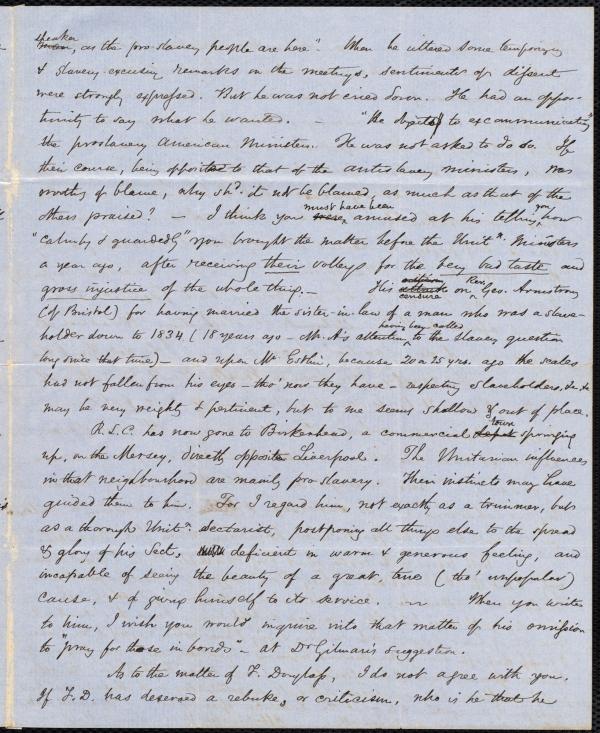 speaker
~~man~~, as the pro-slavery people are here". When he uttered some temporizing
& slavery-excusing remarks in the meetings, sentiments of dissent
were strongly expressed. But he was not cried down. He had an oppor-
tunity to say what he wanted. — "He to excommunicating"
the proslavery American Ministers. He was not asked to do so. If
their course, being opposited to that of the antislavery ministers, was
worthy of blame, why shd. it not be blamed, as much as that of the
others praised? — I think you ~~were~~ must have been amused at his telling you how
"calmly & guardedly" you brought the matter before the Unitn. Ministers
a year ago, after receiving their volleys for the very bad taste and
gross injustice of the whole thing. — His censure on Rev. Geo. Armstrong
(of Bristol) for having married the sister-in-law of a man who was a slave-
holder down to 1834 (18 years ago — Mr. A's attention having been called to the slavery question
long since that time) — and upon Mr. Estlin, because 20 or 25 yrs. ago the scales
had not fallen from his eyes — tho' now they have — respecting slaveholders, &c. &c.
may be very weighty & pertinent, but to me seems shallow & out of place.
R.S.C. has now gone to Birkenhead, a commercial ~~depot~~ town springing
up, on the Mersey, directly opposite Liverpool. The Unitarian influences
in that neighbourhood are mainly pro-slavery. Their instincts may have
guided them to him. For I regard him, not exactly as a trimmer, but
as a thorough Unitn. sectarist, postponing all things else to the spread
& glory of his Sect, deficient in warm & generous feeling, and
incapable of seeing the beauty of a great, true (tho' unpopular)
cause, & of giving himself to its service. — When you write
to him, I wish you would inquire into that matter of his omission
to "pray for those in bonds" — at Dr Gilman's suggestion.
As to the matter of F. Douglass, I do not agree with you.
If F.D. has deserved a rebuke, or criticism, who is he that he